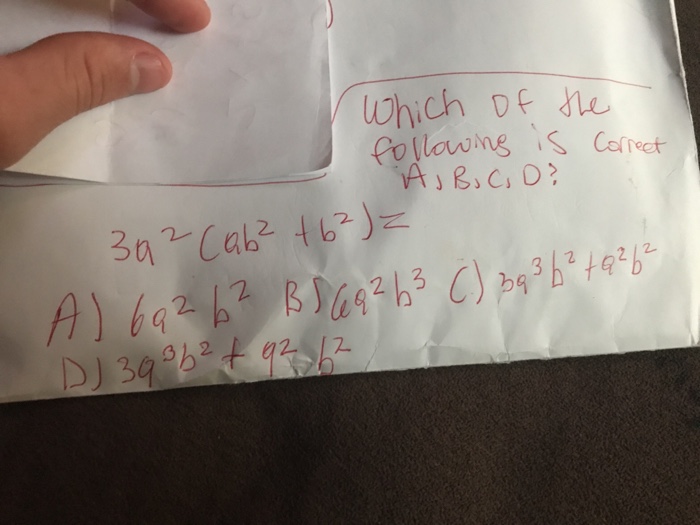 Which of the
following is correct
A, B, C, D?
3a² (ab² + b²) =
A) 6a² b² B) 6a²b³ C) 3a³b² + a²b²
D) 3a³b² + a² b²